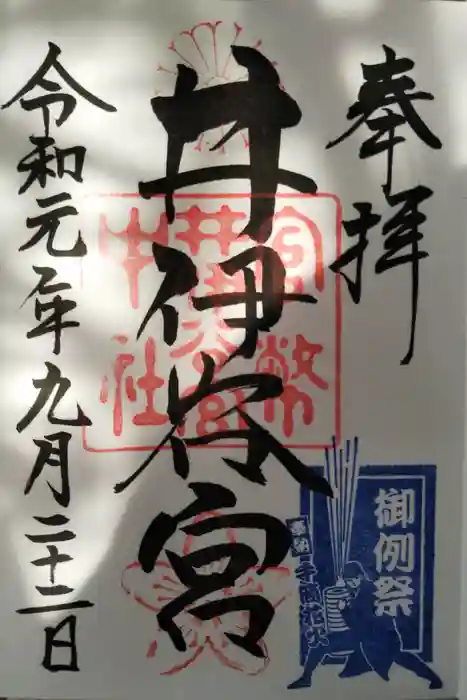 奉拝
井伊谷宮
令和元年九月二十二日
官幣
井伊谷宮
中社
御例祭
奉納
手筒花火